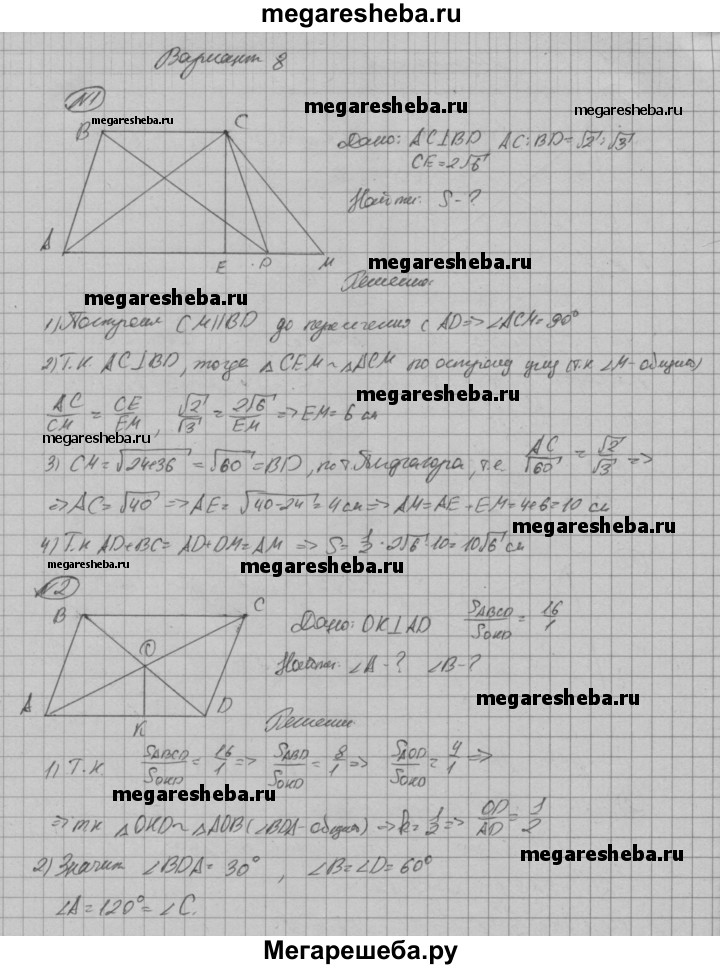 megaresheba.ru
Вариант 8
№1
megaresheba.ru
megaresheba.ru
megaresheba.ru
B C
Дано: AC⊥BD AC:BD=√2:√3
CE=2√6
Найти: S-?
A E D M
megaresheba.ru
Решение:
megaresheba.ru
1) Построим CM||BD до пересечения с AD=>∠ACM=90°
2) Т.к. AC⊥BD, тогда △CEM~△ACM по острому углу (т.к ∠M-общий)
megaresheba.ru
AC/CM = CE/EM, √2/√3 = 2√6/EM => EM=6 см
megaresheba.ru
3) CM=√24+36=√60=BD, по т. Пифагора, т.е. AC/√60 = √2/√3 =>
=> AC=√40 => AE=√40-24=4см => AM=AE+EM=4+6=10 см
megaresheba.ru
4) Т.к AD+BC=AD+DM=AM => S=1/2·2√6·10=10√6 см
megaresheba.ru
megaresheba.ru
№2
B C
O
A K D
Дано: OK⊥AD SABCD/SOKD = 16/1
Найти: ∠A-? ∠B-?
megaresheba.ru
Решение
1) Т.к. SABCD/SOKD = 16/1 => SABD/SOKD = 8/1 => SAOD/SOKD = 4/1 =>
megaresheba.ru
=> тк △OKD~△AOB (∠BDA-общий) => k=1/2 => OD/AD = 1/2
megaresheba.ru
2) Значит ∠BDA=30°, ∠B=∠D=60°
∠A=120°=∠C.
Мегарешеба.ру